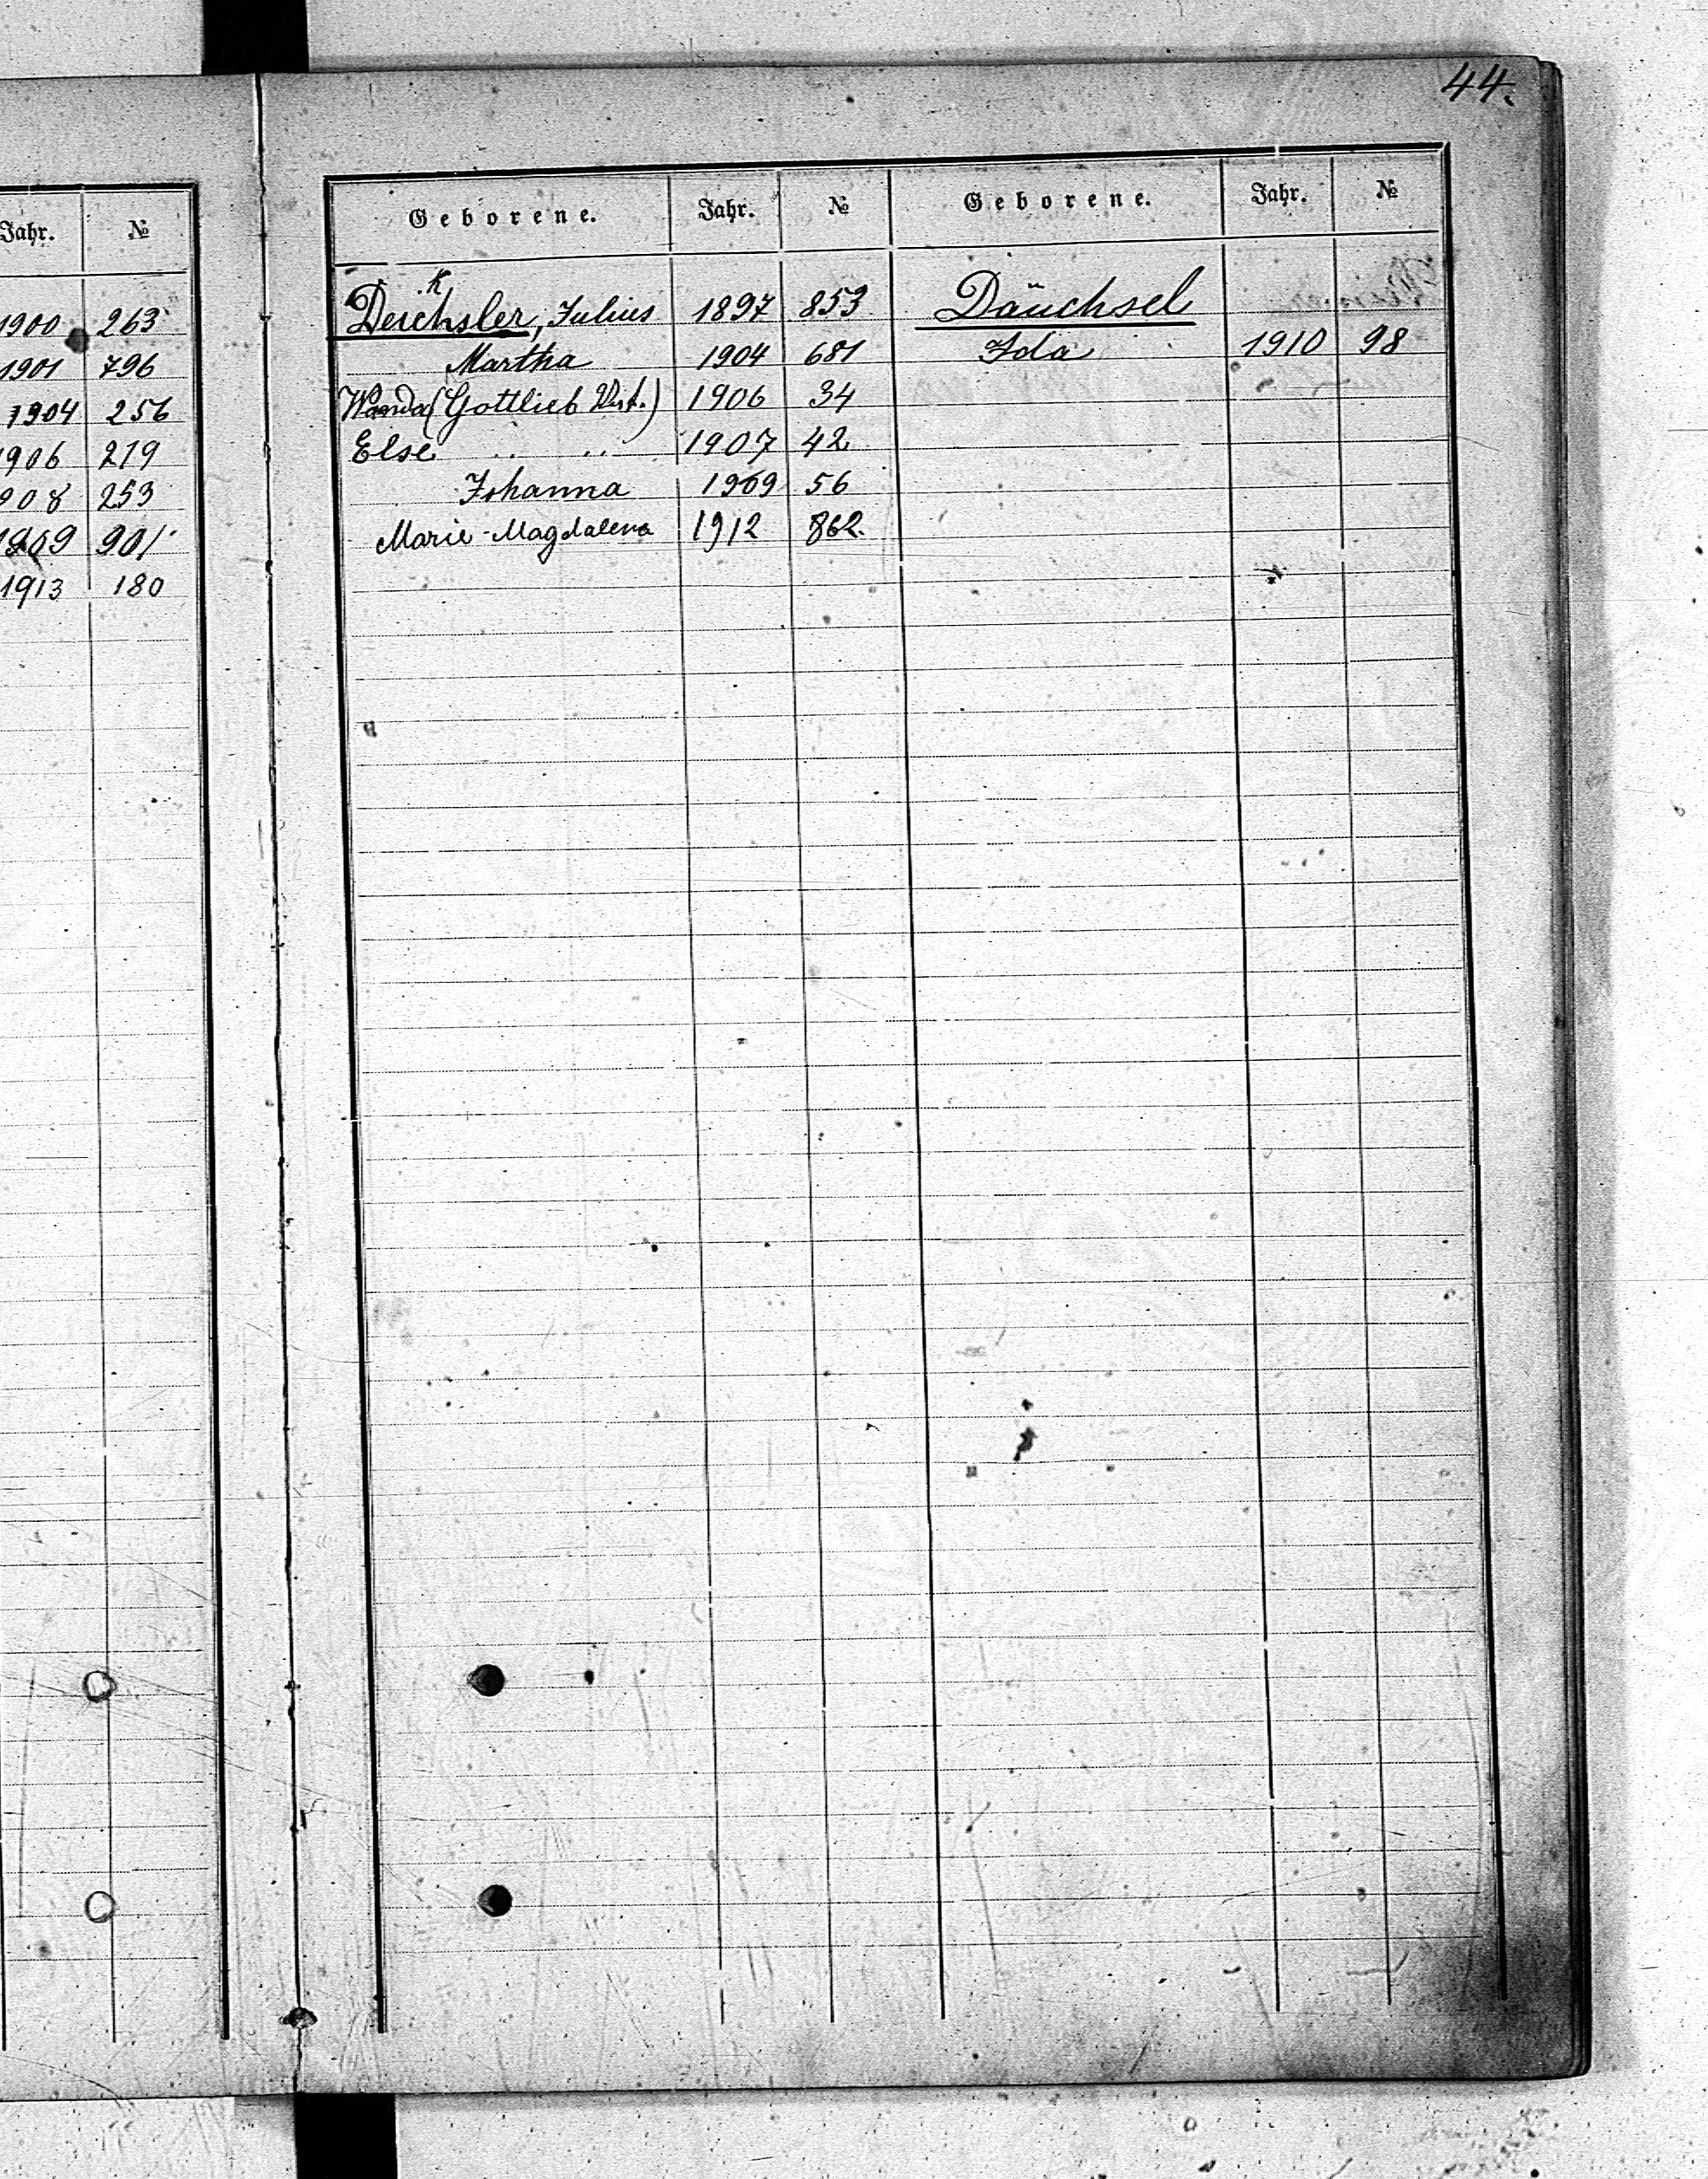 44.
Jahr. №
1900 263
1901 796
1904 256
1906 219
908 253
1909 901
1913 180
Geborene. Jahr. № Geborene. Jahr. №
k
Deichsler, Julius 1897 853 Däuchsel
Martha 1904 681 Ida 1910 98
Wanda (Gottlieb) 1906 34
Else " " 1907 42
Johanna 1909 56
Marie-Magdalena 1912 862.